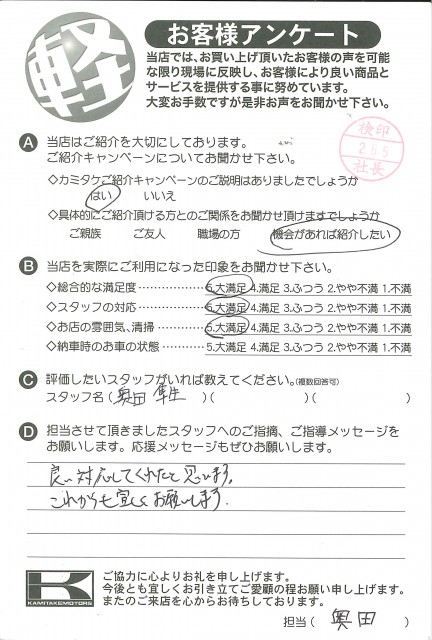 軽
お客様アンケート
当店では、お買い上げ頂いたお客様の声を可能
な限り現場に反映し、お客様により良い商品と
サービスを提供する事に努めています。
大変お手数ですが是非お声をお聞かせ下さい。
検印
2.6.5
社長
A 当店はご紹介を大切にしております。
ご紹介キャンペーンについてお聞かせ下さい。
◇カミタケご紹介キャンペーンのご説明はありましたでしょうか
はい いいえ
◇具体的にご紹介頂ける方とのご関係をお聞かせ頂けますでしょうか
ご親族 ご友人 職場の方 機会があれば紹介したい
B 当店を実際にご利用になった印象をお聞かせ下さい。
◇総合的な満足度・・・・・・・・・・・・5.大満足 4.満足 3.ふつう 2.やや不満 1.不満
◇スタッフの対応・・・・・・・・・・・・5.大満足 4.満足 3.ふつう 2.やや不満 1.不満
◇お店の雰囲気、清掃・・・・・・・・5.大満足 4.満足 3.ふつう 2.やや不満 1.不満
◇納車時のお車の状態・・・・・・・・5.大満足 4.満足 3.ふつう 2.やや不満 1.不満
C 評価したいスタッフがいれば教えてください。(複数回答可)
スタッフ名(奥田 )( )( )
D 担当させて頂きましたスタッフへのご指摘、ご指導メッセージを
お願いします。応援メッセージもぜひお願いします。
良い対応してくれたと思います。
これからも宜しくお願いします。
K
KAMITAKEMOTORS
ご協力に心よりお礼を申し上げます。
今後とも宜しくお引き立てご愛顧の程お願い申し上げます。
またのご来店を心からお待ちしております。
担当( 奥田 )